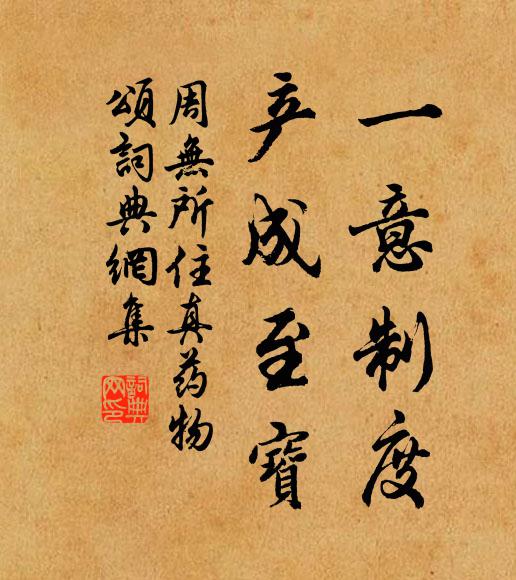 一意制度
产成至寶
周無所住真药物
頌詞典網集
詞典网印